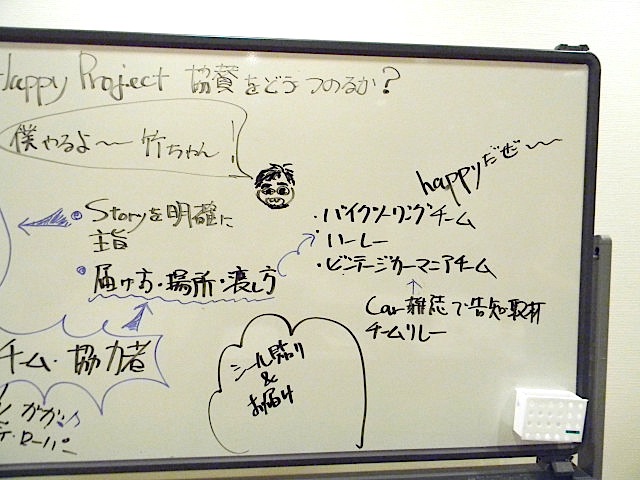 Happy Project 協賛をどうつのるか?
僕やるよ〜 竹ちゃん!
happyだぜ〜
・Storyを明確に
主旨
・届け方・場所・渡し方
・バイクツーリングチーム
・ハーレー
・ビンテージカーマニアチーム
Car雑誌で告知取材
チームリレー
シール貼り
&
お届け
チーム・協力者
ガガ♪